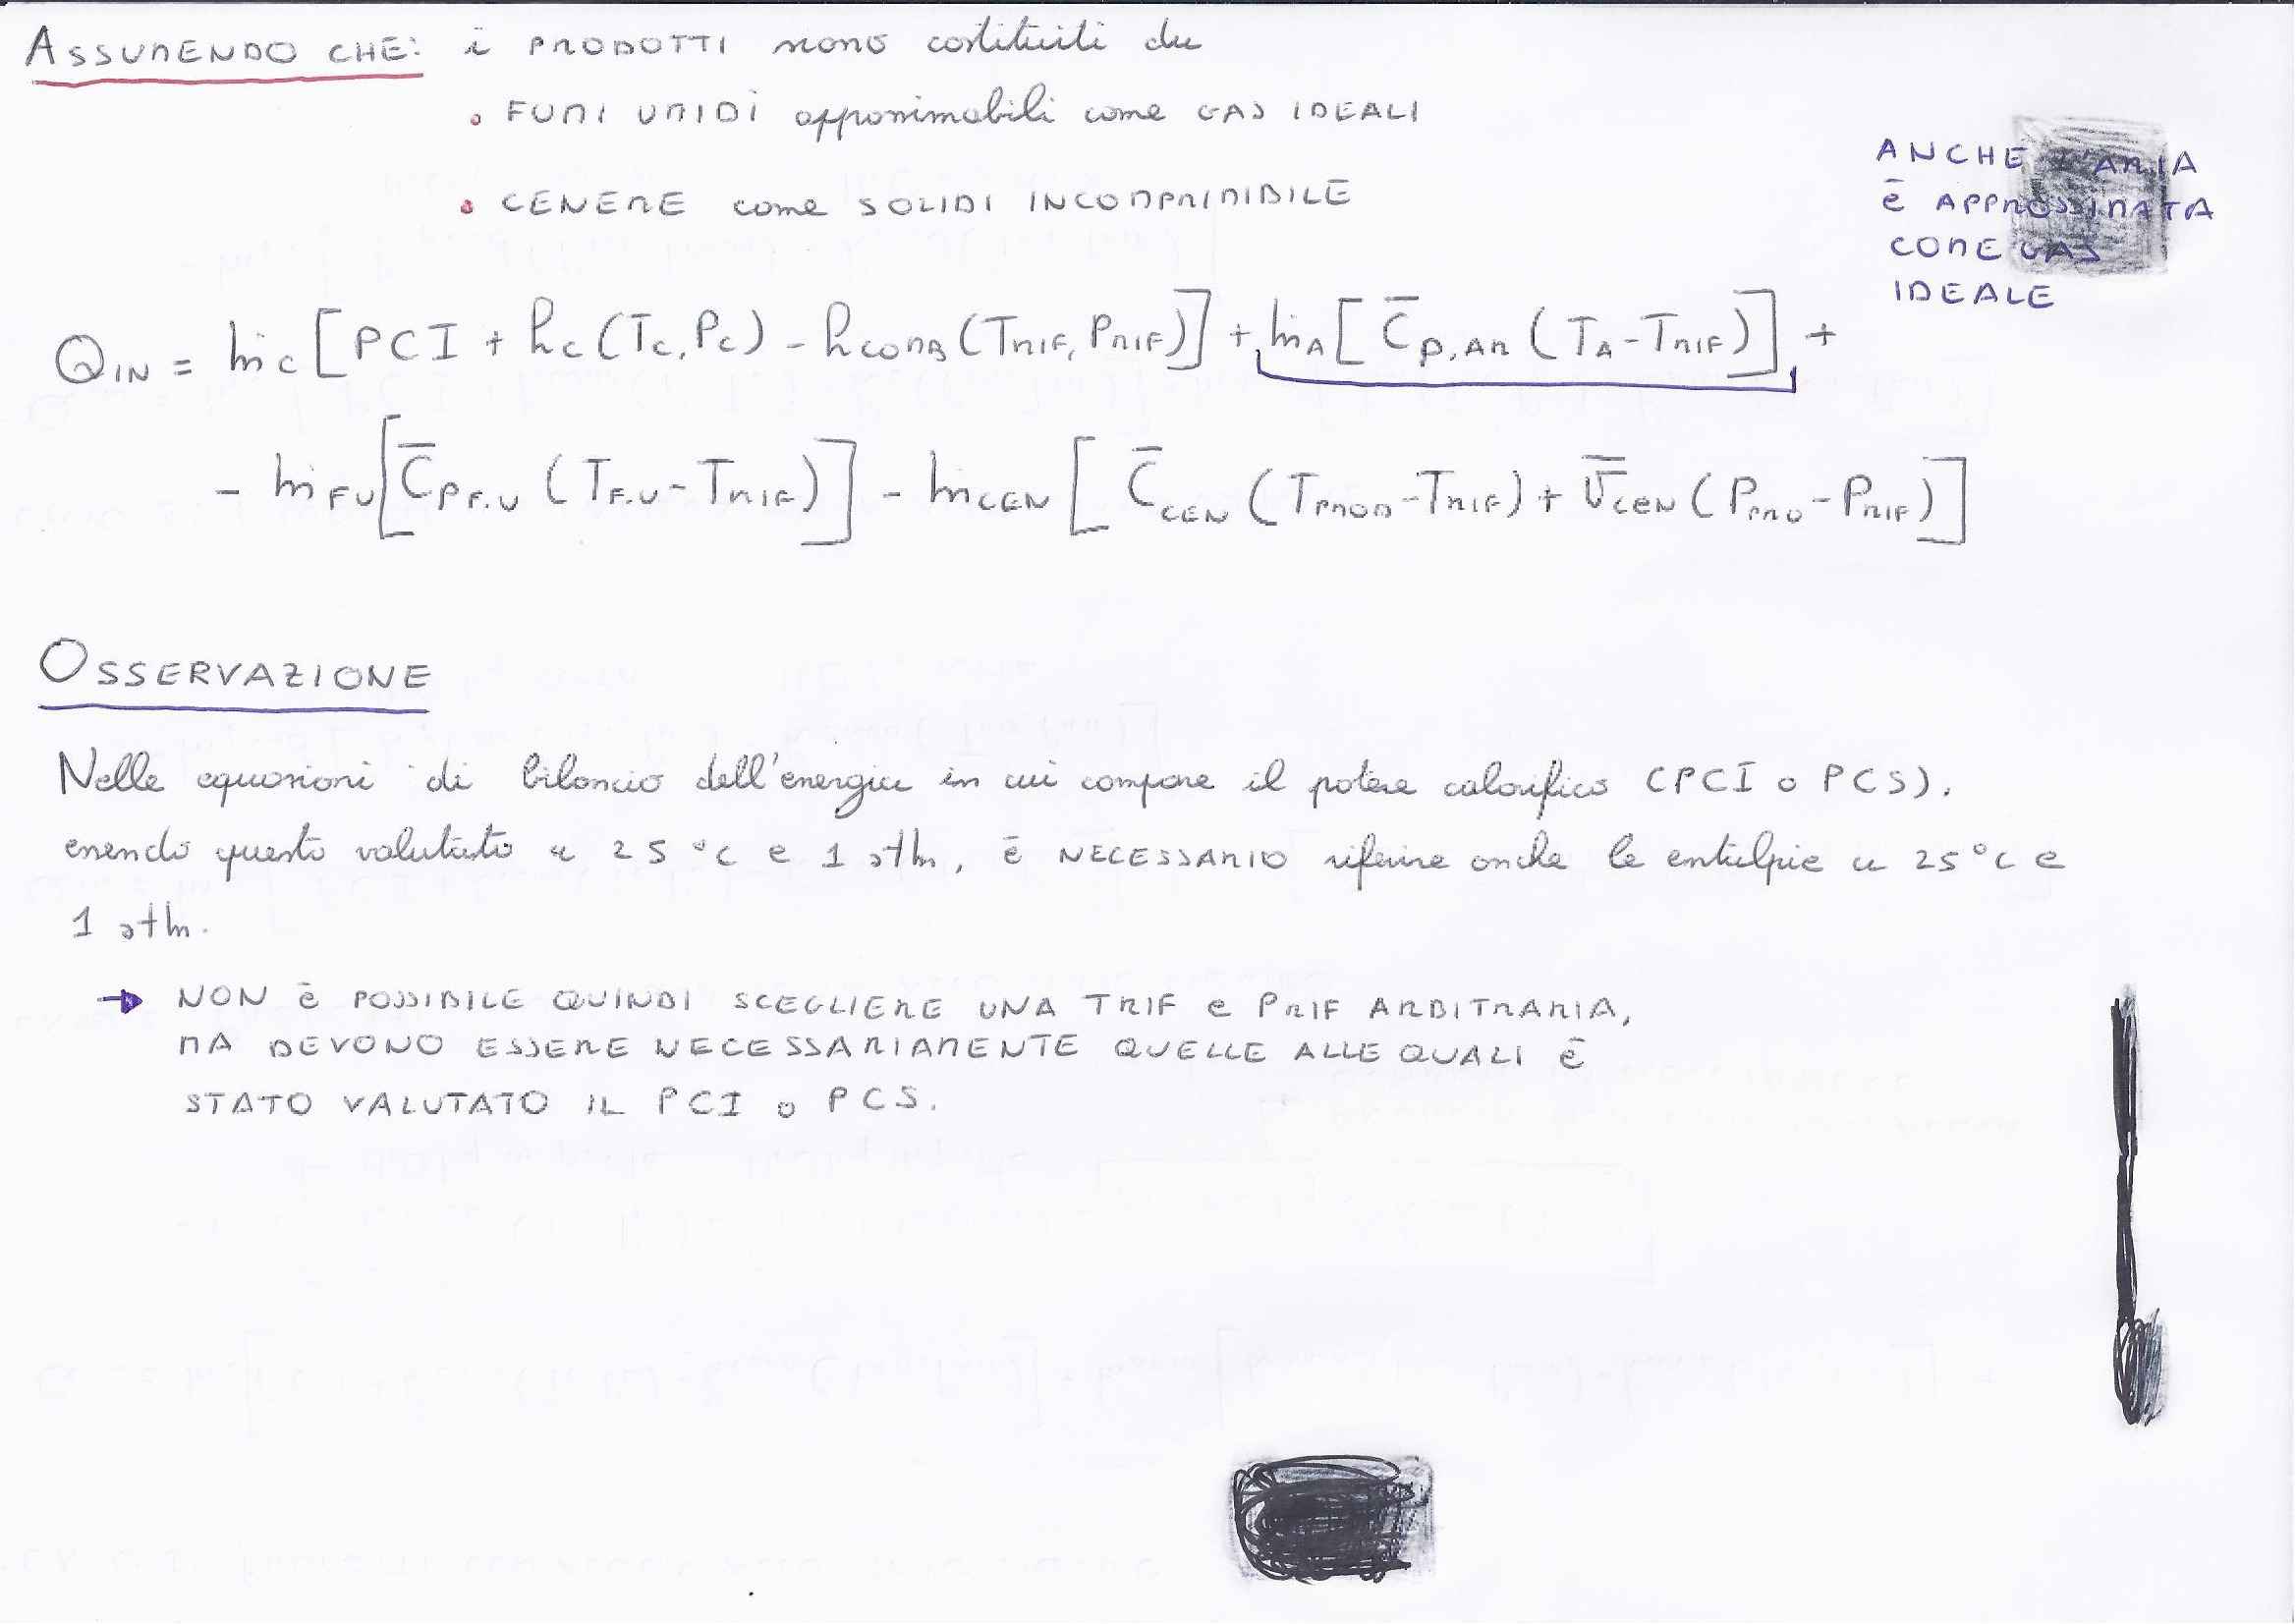 ASSUMENDO CHE: i PRODOTTI sono costituiti da
• FUMI UMIDI approssimabili come GAS IDEALI
• CENERE come SOLIDI INCOMPRIMIBILE
ANCHE L'ARIA
è APPROSSIMATA
COME GAS
IDEALE
Q_IN = ṁ_C [PCI + h_C (T_C, P_C) - h_COMB (T_RIF, P_RIF)] + ṁ_A [C̄_P,AR (T_A - T_RIF)] +
- ṁ_FU [C̄_P F.U (T_F.U - T_RIF)] - ṁ_CEN [C̄_CEN (T_PROD - T_RIF) + v̄_CEN (P_PRO - P_RIF)]
OSSERVAZIONE
Nelle equazioni di bilancio dell'energia in cui compare il potere calorifico (PCI o PCS),
essendo questo valutato a 25 °C e 1 atm, è NECESSARIO riferire anche le entalpie a 25 °C e
1 atm.
→ NON è POSSIBILE QUINDI SCEGLIERE UNA TRIF e PRIF ARBITRARIA,
MA DEVONO ESSERE NECESSARIAMENTE QUELLE ALLE QUALI È
STATO VALUTATO IL PCI o PCS.